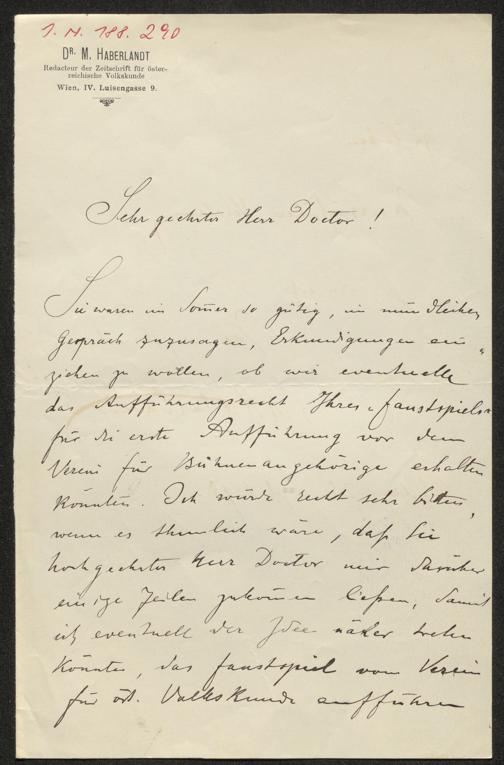 1. N. 188.290
DR. M. HABERLANDT
Redacteur der Zeitschrift für öster-
reichische Volkskunde
Wien, IV. Luisengasse 9.
Sehr geehrter Herr Doctor!
Sie waren im Somer so gütig, in mündlichen
Gespräch zuzusagen, Erkundigungen ein„
ziehen zu wollen, ob wir eventuelle
das Aufführungsrecht Ihres „Faustspiels"
für die erste Aufführung vor dem
Verein für Bühnenangehörige erhalten
könnten. Ich würde recht sehr bitten,
wenn es thunlich wäre, daß Sie
hochgeehrter Herr Doctor mir darüber
einige Zeilen zukommen ließen, damit
ich eventuell der Idee näher treten
könnte, das Faustspiel vom Verein
für öst. Volkskunde aufführen